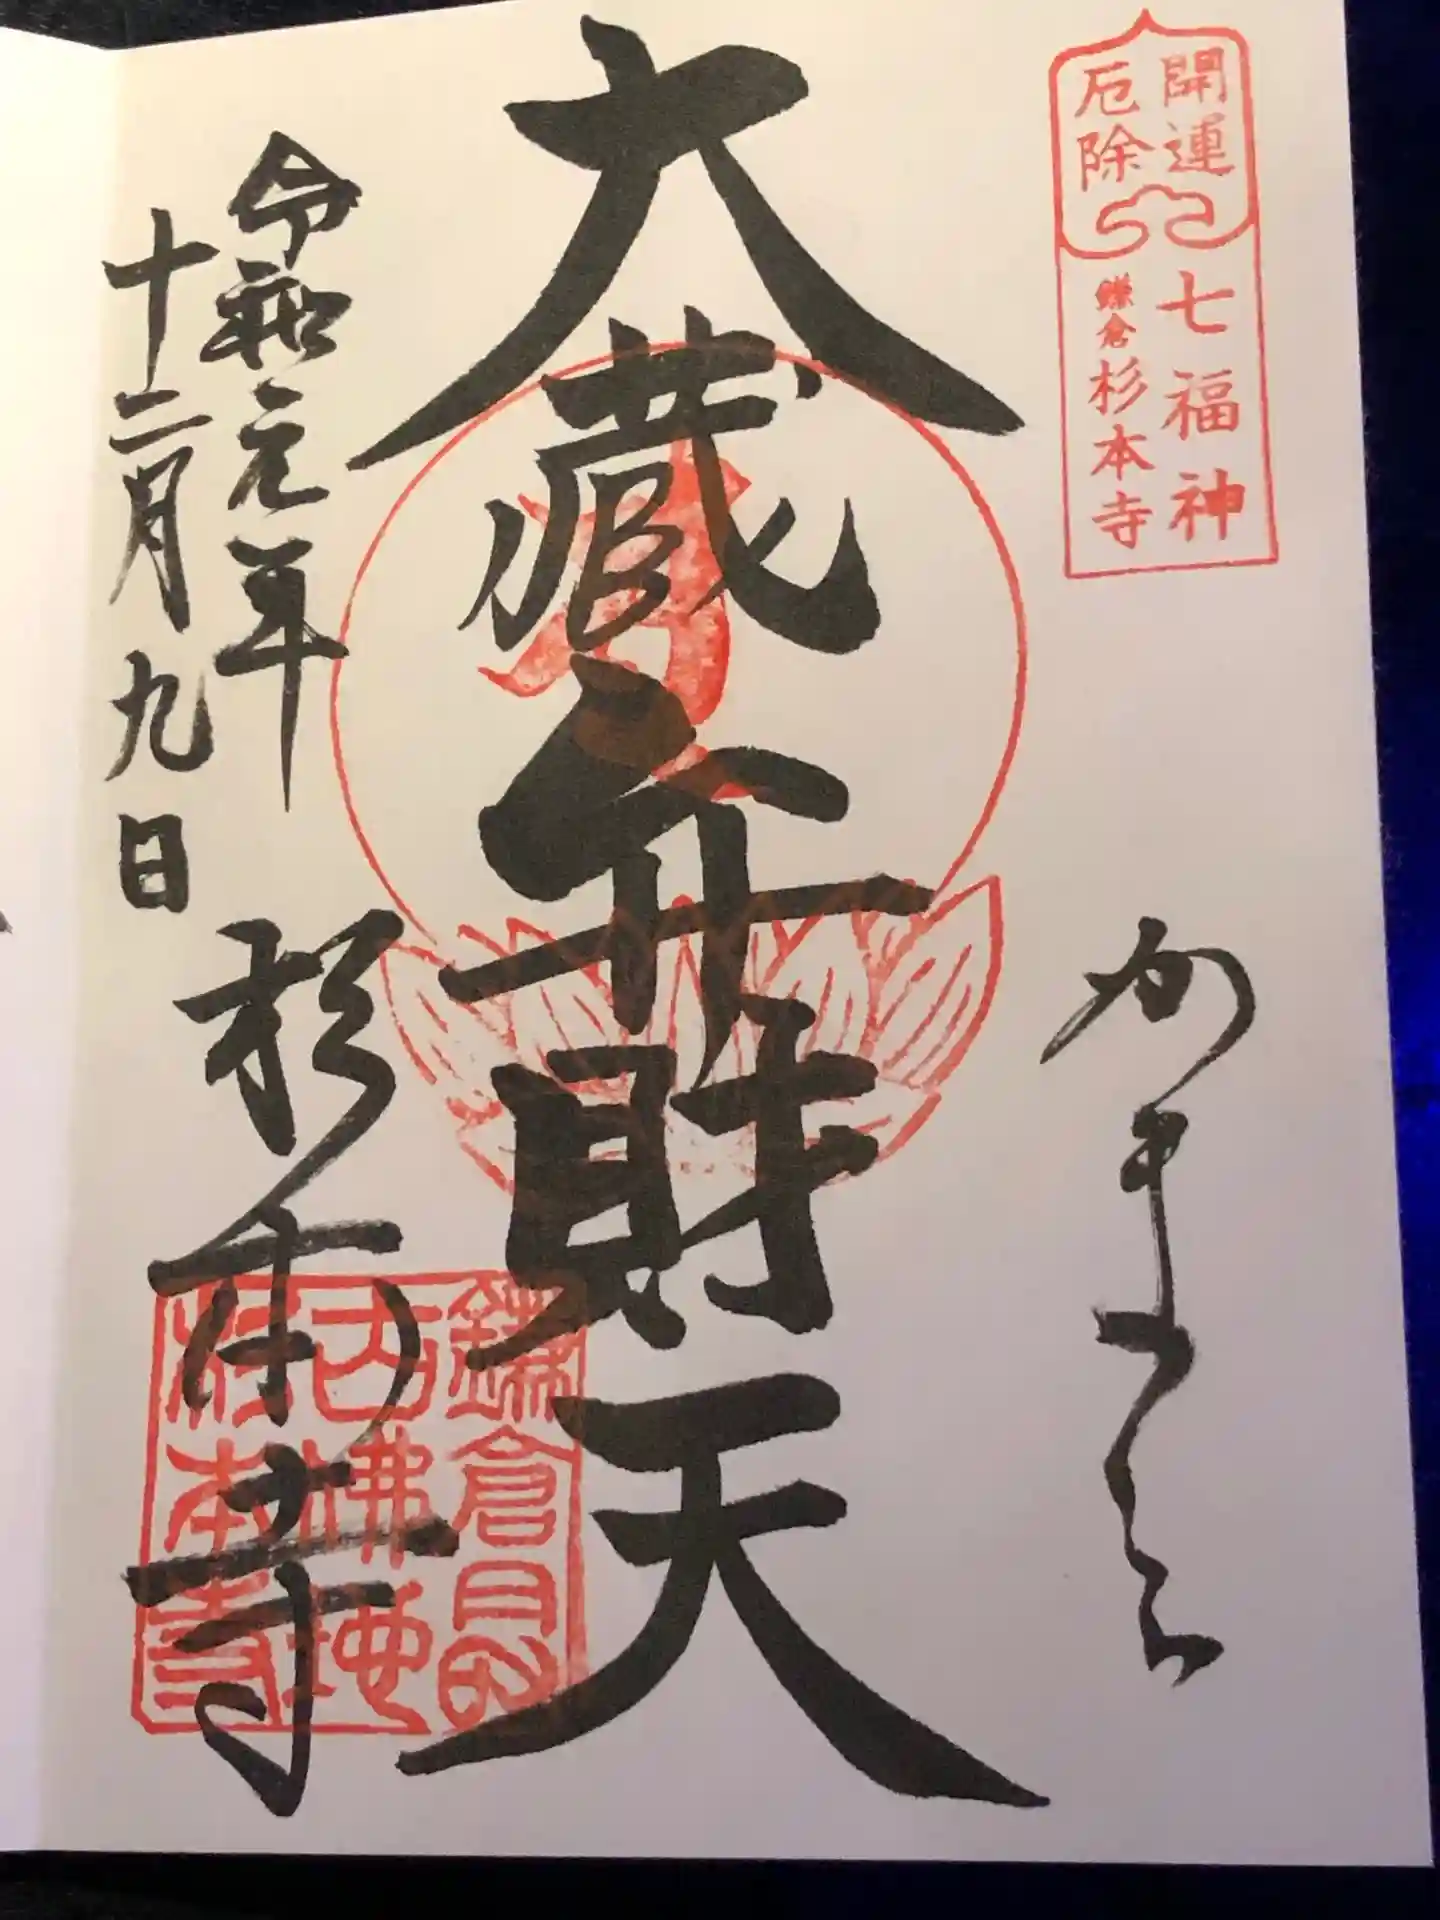 開運
厄除
七福神
鎌倉杉本寺
かまくら
大蔵弁財天
令和元年
十二月九日
杉本寺
鎌倉
古佛地
杉本寺